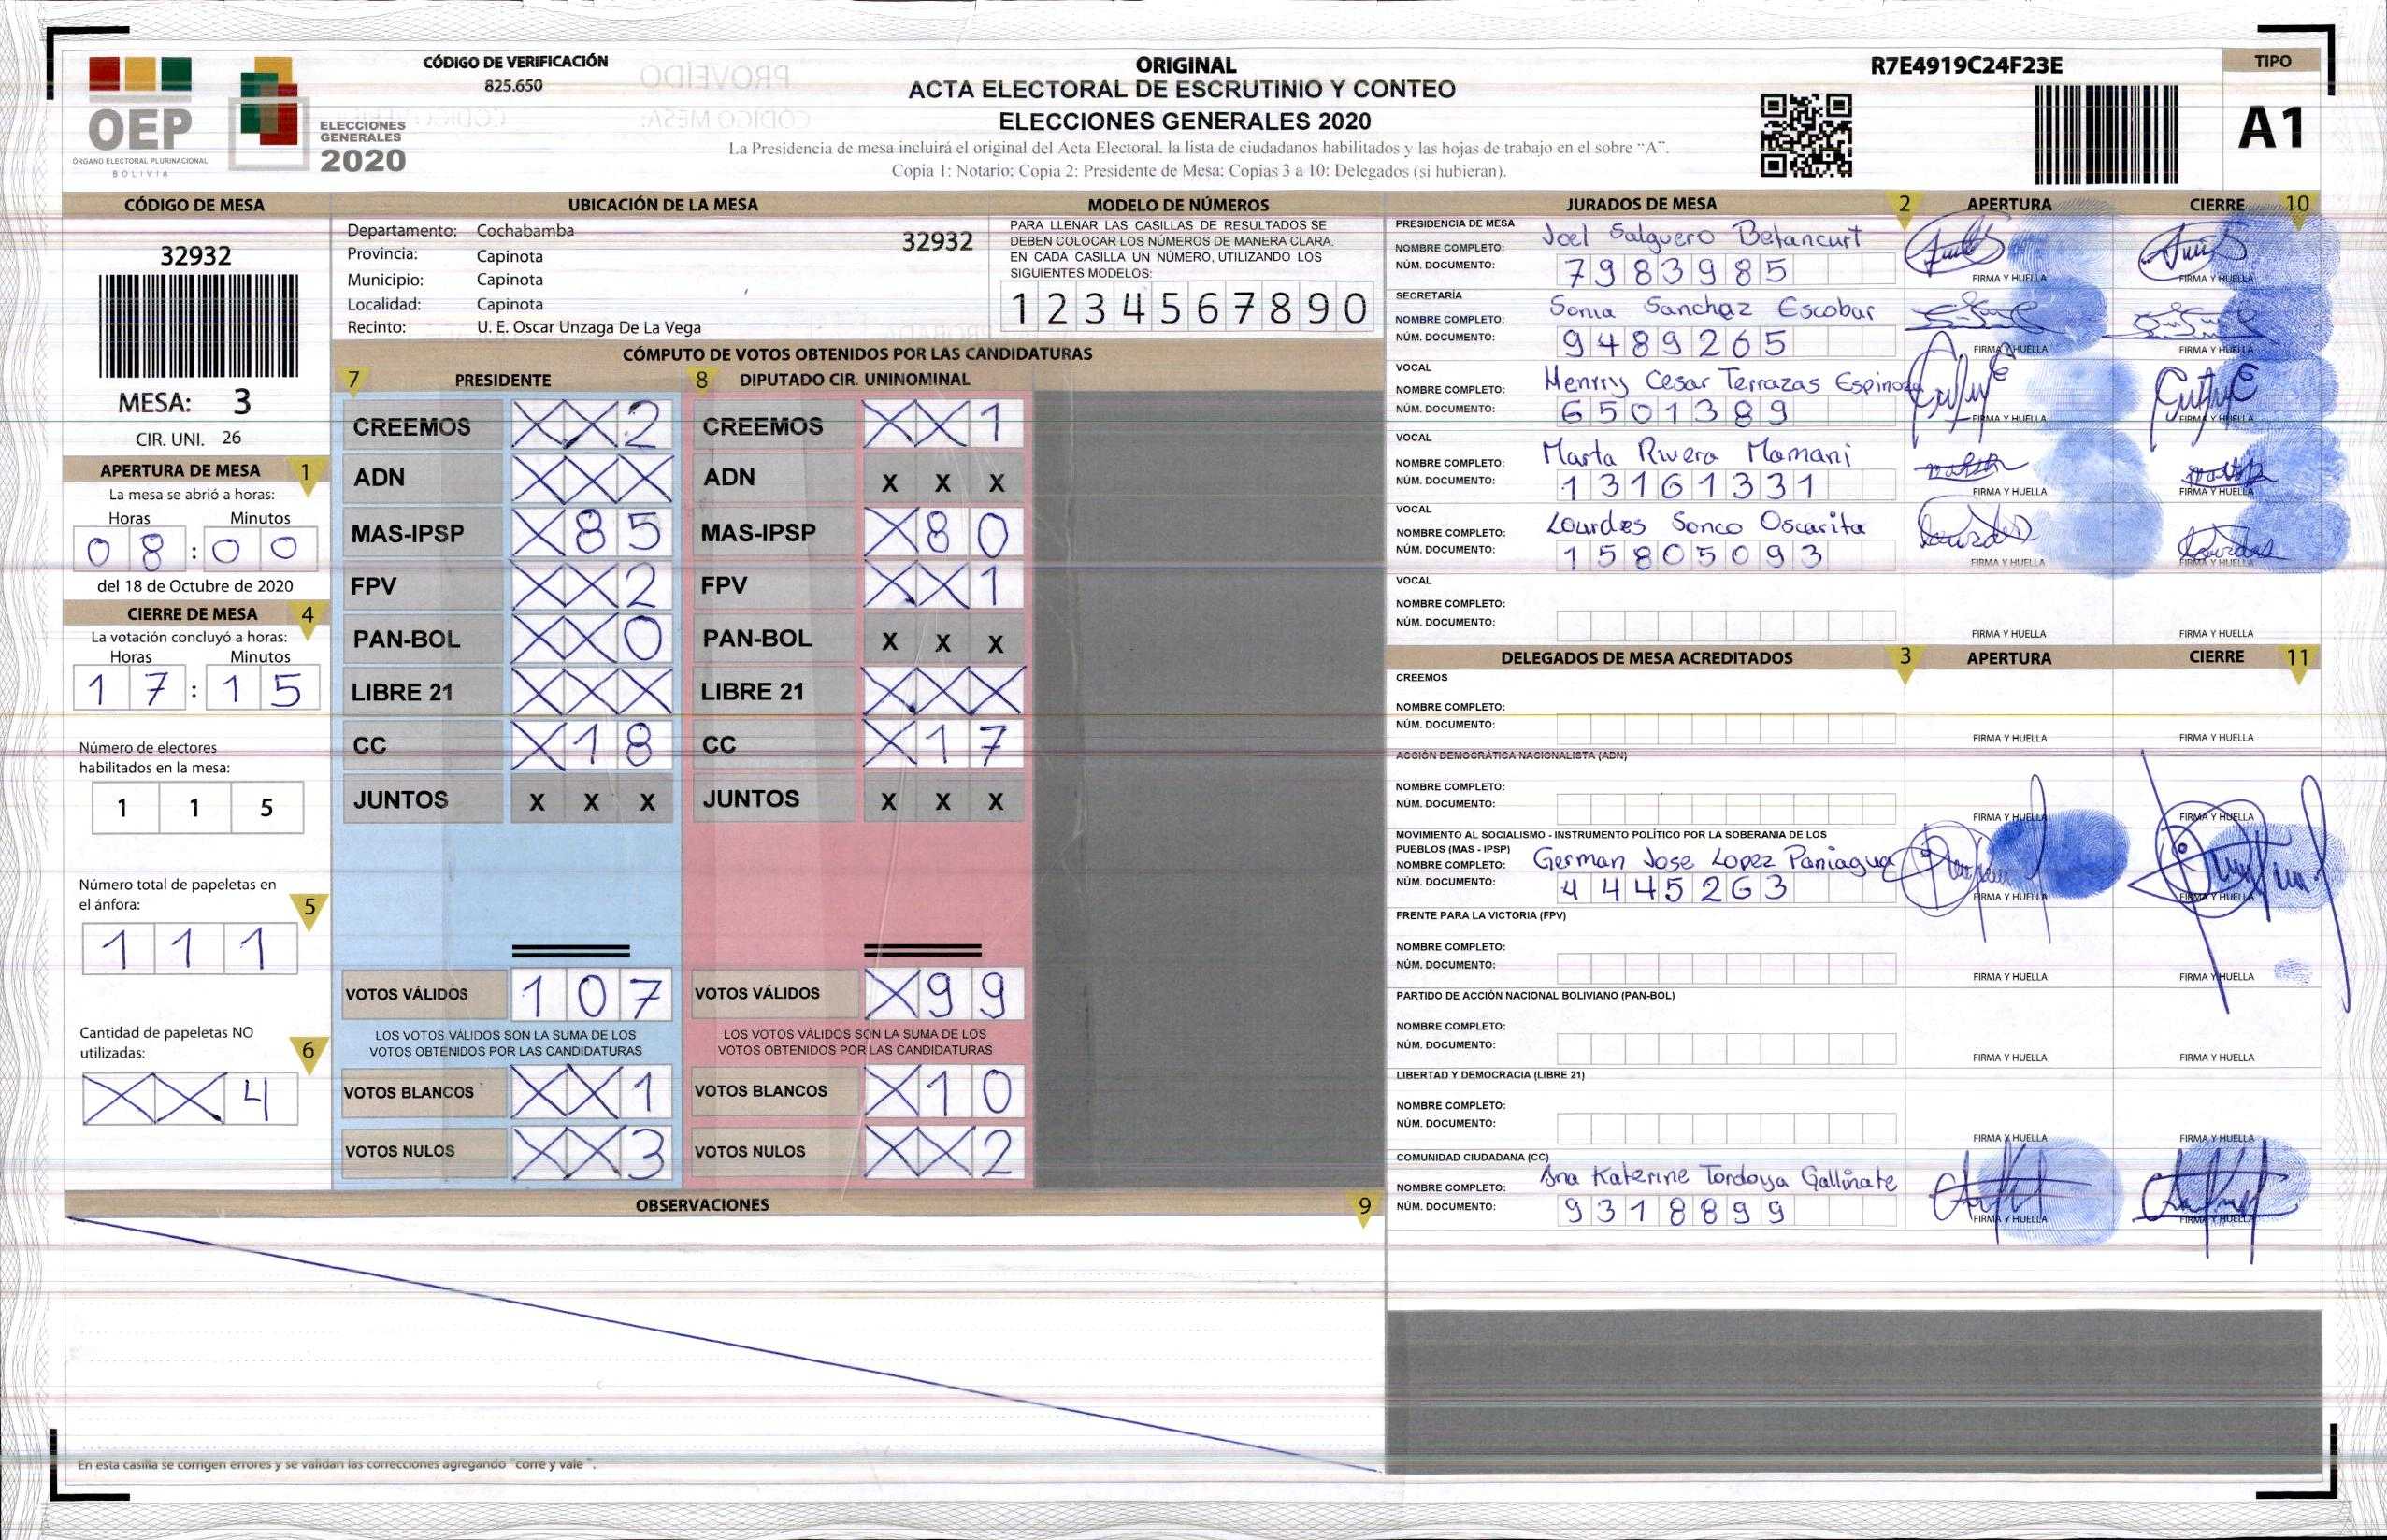 ORIGINAL
ACTA ELECTORAL DE ESCRUTINIO Y CONTEO
ELECCIONES GENERALES 2020
La Presidencia de mesa incluirá el original del Acta Electoral, la lista de ciudadanos habilitados y las hojas de trabajo en el sobre "A".
Copia 1: Notario; Copia 2: Presidente de Mesa; Copias 3 a 10: Delegados (si hubieran).
OEP
ÓRGANO ELECTORAL PLURINACIONAL
BOLIVIA
ELECCIONES
GENERALES
2020
CÓDIGO DE VERIFICACIÓN
825.650
R7E4919C24F23E
TIPO
A1
CÓDIGO DE MESA
32932
MESA: 3
CIR. UNI. 26
APERTURA DE MESA 1
La mesa se abrió a horas:
Horas Minutos
08:00
del 18 de Octubre de 2020
CIERRE DE MESA 4
La votación concluyó a horas:
Horas Minutos
17:15
Número de electores
habilitados en la mesa:
1 1 5
Número total de papeletas en
el ánfora: 5
1 1 1
Cantidad de papeletas NO
utilizadas: 6
X X 4
UBICACIÓN DE LA MESA
Departamento: Cochabamba
32932
Provincia: Capinota
Municipio: Capinota
Localidad: Capinota
Recinto: U. E. Oscar Unzaga De La Vega
MODELO DE NÚMEROS
PARA LLENAR LAS CASILLAS DE RESULTADOS SE
DEBEN COLOCAR LOS NÚMEROS DE MANERA CLARA.
EN CADA CASILLA UN NÚMERO, UTILIZANDO LOS
SIGUIENTES MODELOS:
1 2 3 4 5 6 7 8 9 0
CÓMPUTO DE VOTOS OBTENIDOS POR LAS CANDIDATURAS
7 PRESIDENTE 8 DIPUTADO CIR. UNINOMINAL
CREEMOS X X 2 CREEMOS X X 1
ADN X X X ADN X X X
MAS-IPSP X 8 5 MAS-IPSP X 8 0
FPV X X 2 FPV X X 1
PAN-BOL X X 0 PAN-BOL X X X
LIBRE 21 X X X LIBRE 21 X X X
CC X 1 8 CC X 1 7
JUNTOS X X X JUNTOS X X X
VOTOS VÁLIDOS 1 0 7 VOTOS VÁLIDOS X 9 9
LOS VOTOS VÁLIDOS SON LA SUMA DE LOS LOS VOTOS VÁLIDOS SON LA SUMA DE LOS
VOTOS OBTENIDOS POR LAS CANDIDATURAS VOTOS OBTENIDOS POR LAS CANDIDATURAS
VOTOS BLANCOS X X 1 VOTOS BLANCOS X 1 0
VOTOS NULOS X X 3 VOTOS NULOS X X 2
OBSERVACIONES 9
En esta casilla se corrigen errores y se validan las correcciones agregando "corre y vale".
JURADOS DE MESA 2 APERTURA CIERRE 10
PRESIDENCIA DE MESA
NOMBRE COMPLETO: Joel Salguero Betancurt
NÚM. DOCUMENTO: 7983985
FIRMA Y HUELLA FIRMA Y HUELLA
SECRETARÍA
NOMBRE COMPLETO: Sonia Sanchaz Escobar
NÚM. DOCUMENTO: 9489265
FIRMA Y HUELLA FIRMA Y HUELLA
VOCAL
NOMBRE COMPLETO: Menrry Cesar Terrazas Espinoza
NÚM. DOCUMENTO: 6501389
FIRMA Y HUELLA FIRMA Y HUELLA
VOCAL
NOMBRE COMPLETO: Marta Rivera Mamani
NÚM. DOCUMENTO: 13161331
FIRMA Y HUELLA FIRMA Y HUELLA
VOCAL
NOMBRE COMPLETO: Lourdes Sonco Oscarita
NÚM. DOCUMENTO: 15805093
FIRMA Y HUELLA FIRMA Y HUELLA
VOCAL
NOMBRE COMPLETO:
NÚM. DOCUMENTO:
FIRMA Y HUELLA FIRMA Y HUELLA
DELEGADOS DE MESA ACREDITADOS 3 APERTURA CIERRE 11
CREEMOS
NOMBRE COMPLETO:
NÚM. DOCUMENTO:
FIRMA Y HUELLA FIRMA Y HUELLA
ACCIÓN DEMOCRÁTICA NACIONALISTA (ADN)
NOMBRE COMPLETO:
NÚM. DOCUMENTO:
FIRMA Y HUELLA FIRMA Y HUELLA
MOVIMIENTO AL SOCIALISMO - INSTRUMENTO POLÍTICO POR LA SOBERANIA DE LOS
PUEBLOS (MAS - IPSP)
NOMBRE COMPLETO: German Jose Lopez Paniagua
NÚM. DOCUMENTO: 4445263
FIRMA Y HUELLA FIRMA Y HUELLA
FRENTE PARA LA VICTORIA (FPV)
NOMBRE COMPLETO:
NÚM. DOCUMENTO:
FIRMA Y HUELLA FIRMA Y HUELLA
PARTIDO DE ACCIÓN NACIONAL BOLIVIANO (PAN-BOL)
NOMBRE COMPLETO:
NÚM. DOCUMENTO:
FIRMA Y HUELLA FIRMA Y HUELLA
LIBERTAD Y DEMOCRACIA (LIBRE 21)
NOMBRE COMPLETO:
NÚM. DOCUMENTO:
FIRMA Y HUELLA FIRMA Y HUELLA
COMUNIDAD CIUDADANA (CC)
NOMBRE COMPLETO: Ana Katerine Tordoya Gallinate
NÚM. DOCUMENTO: 9318899
FIRMA Y HUELLA FIRMA Y HUELLA